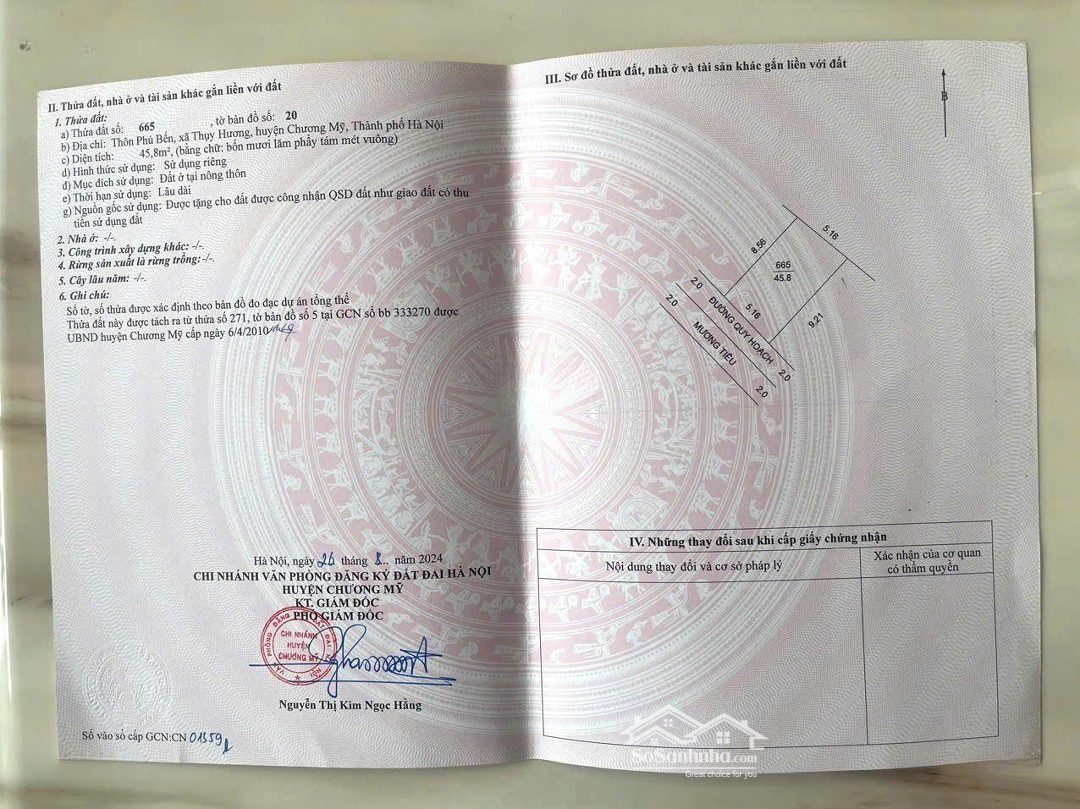 II. Thửa đất, nhà ở và tài sản khác gắn liền với đất
1. Thửa đất:
a) Thửa đất số: 665 , tờ bản đồ số: 20
b) Địa chỉ: Thôn Phú Bến, xã Thụy Hương, huyện Chương Mỹ, Thành phố Hà Nội
c) Diện tích: 45,8m², (bằng chữ: bốn mươi lăm phẩy tám mét vuông)
d) Hình thức sử dụng: Sử dụng riêng
đ) Mục đích sử dụng: Đất ở tại nông thôn
e) Thời hạn sử dụng: Lâu dài
g) Nguồn gốc sử dụng: Được tặng cho đất được công nhận QSD đất như giao đất có thu
tiền sử dụng đất
2. Nhà ở: -/-.
3. Công trình xây dựng khác: -/-.
4. Rừng sản xuất là rừng trồng: -/-.
5. Cây lâu năm: -/-.
6. Ghi chú:
Số tờ, số thửa được xác định theo bản đồ đo đạc dự án tổng thể
Thửa đất này được tách ra từ thửa số 271, tờ bản đồ số 5 tại GCN số bb 333270 được
UBND huyện Chương Mỹ cấp ngày 6/4/2010
Hà Nội, ngày 26 tháng 8.. năm 2024
CHI NHÁNH VĂN PHÒNG ĐĂNG KÝ ĐẤT ĐAI HÀ NỘI
HUYỆN CHƯƠNG MỸ
KT. GIÁM ĐỐC
PHÓ GIÁM ĐỐC
VĂN PHÒNG ĐĂNG KÝ ĐẤT ĐAI HÀ NỘI
CHI NHÁNH
HUYỆN
CHƯƠNG MỸ
Nguyễn Thị Kim Ngọc Hằng
Số vào sổ cấp GCN:CN 01359
III. Sơ đồ thửa đất, nhà ở và tài sản khác gắn liền với đất
B
8.56
5.16
665
45.8
2.0
5.16
9.21
2.0
ĐƯỜNG QUY HOẠCH
MƯƠNG TIÊU
2.0
2.0
IV. Những thay đổi sau khi cấp giấy chứng nhận
Nội dung thay đổi và cơ sở pháp lý
Xác nhận của cơ quan
có thẩm quyền
SoSanhnha.com
Great choice for you